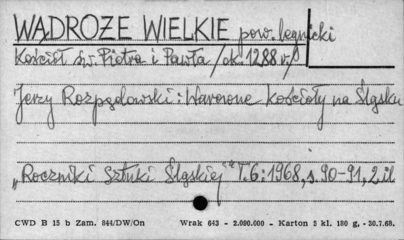 WĄDROŻE WIELKIE pow. legnicki
Kościół św. Pietra i Pawła /ok. 1288 r./
Jerzy Rozpędowski: Warowne kościoły na Śląsku
„Roczniki Sztuki Śląskiej" T.6:1968, s. 90-91, 2 il.
CWD B 15 b Zam. 844/DW/On Wrak 643 - 2.000.000 - Karton 3 kl. 180 g, - 30.7.68.